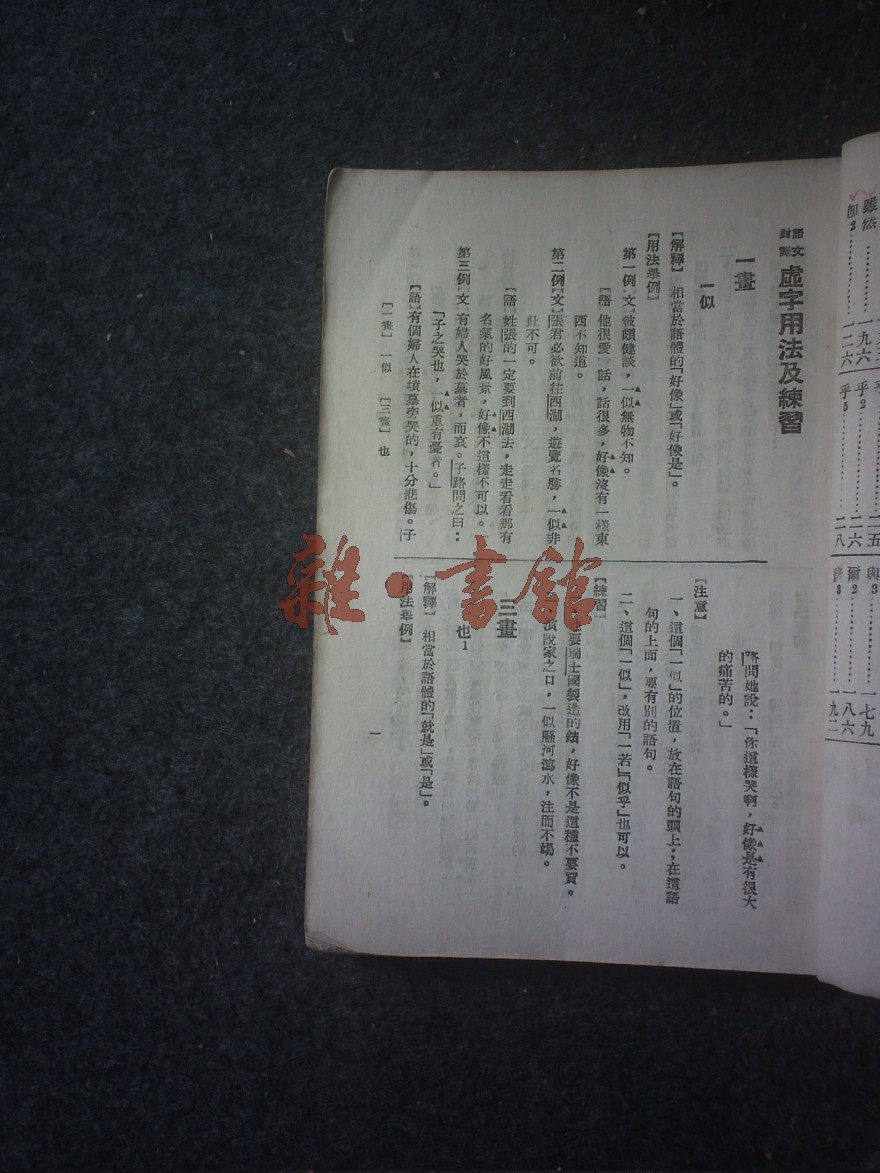 語文對譯 虛字用法及練習
一畫
一似
【解釋】 相當於語體的「好像」或「好像是」。
【用法舉例】
第一例【文】彼頗健談，一似無物不知。
【語】他很愛 話，話很多，好像沒有一樣東
西不知道。
第二例【文】張君必欲前往西湖，遊覽名勝，一似非
此不可。
【語】姓張的一定要到西湖去，走走看看那有
名氣的好風景，好像不這樣不可以。
第三例【文】有婦人哭於墓者，而哀。子路問之曰：
「子之哭也，一似重有憂者。」
【語】有個婦人在墳墓旁哭的，十分悲傷。子
路問她說：「你這樣哭啊，好像是有很大
的痛苦的。」
【注意】
一、這個「一似」的位置，放在語句的頭上；在這語
句的上面，要有別的語句。
二、這個「一似」，改用「一若」「似乎」也可以。
【練習】
要瑞士國製造的錶，好像不是這種不要買。
演說家之口，一似懸河瀉水，注而不竭。
三畫
也1
【解釋】 相當於語體的「就是」或「是」。
【用法舉例】
【一畫】 一似 【三畫】 也
一
雖然
一九六
即2
一二六
乎2
二六
乎5
二八
與3
一七九
爾2
一八六
3
一九二
雜·書館